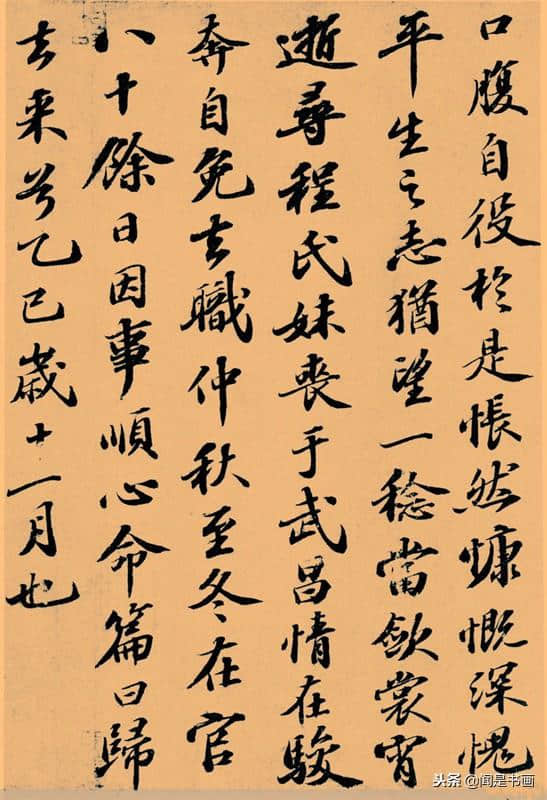 口腹自役於是悵然慷慨深愧
平生之志猶望一稔當斂裳宵
逝尋程氏妹喪于武昌情在駿
奔自免去職仲秋至冬在官
八十餘日因事順心命篇曰歸
去来兮乙巳歲十一月也
头条 @闻是书画